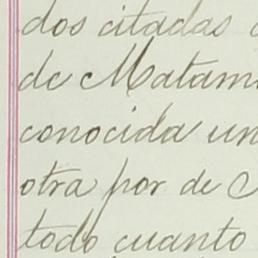 dos citadas
de Matam
conocida un
otra por de
todo cuanto